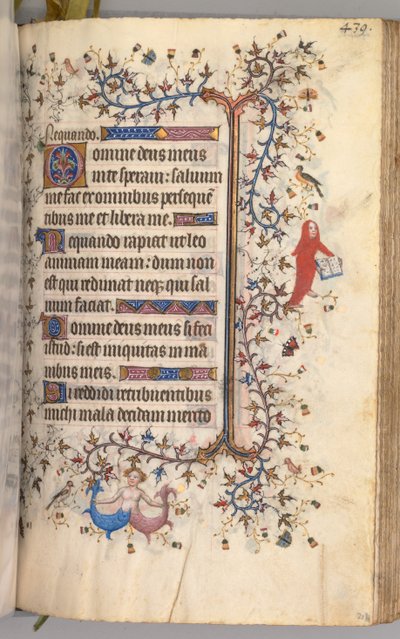 439.
Nequando.
Domine deus meus
in te speraui: saluum
me fac ex omnibus perseque̅
tibus me et libera me.
Nequando rapiat ut leo
animam meam: dum non
est qui redimat neq; qui sal
uum faciat.
Domine deus meus si feci
istud: si est iniquitas in ma
nibus meis.
Si reddidi retribuentibus
michi mala decidam merito